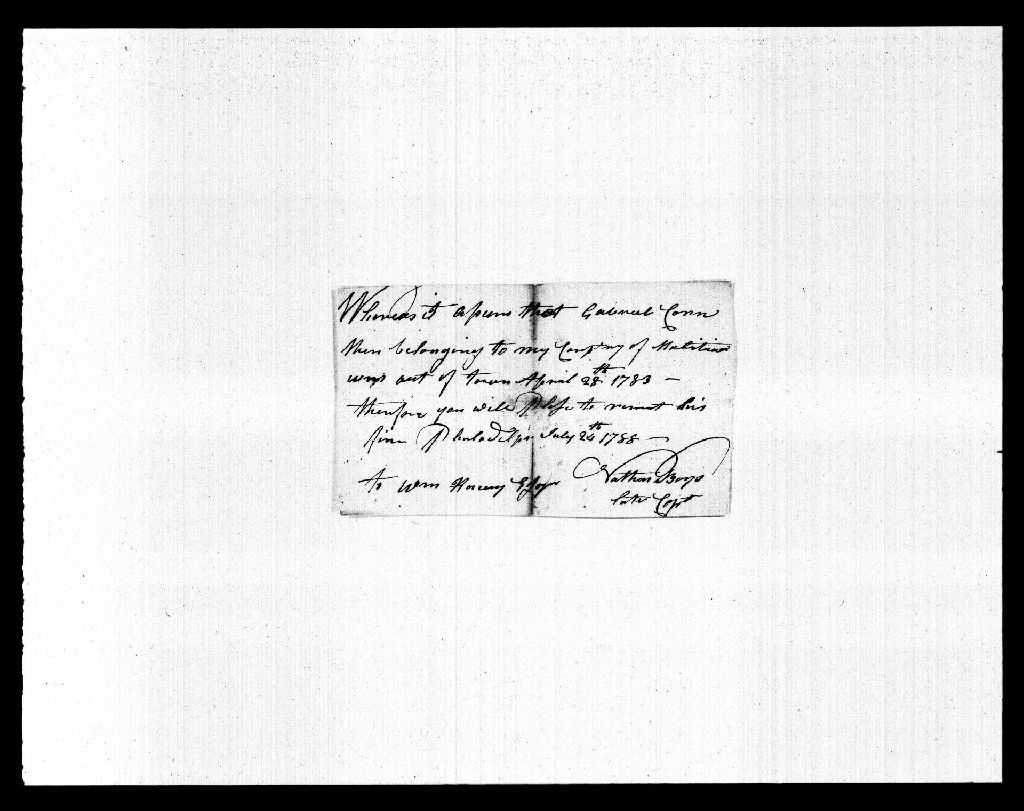 Whereas it apears that Gabriel Conn
then belonging to my Compny of Malitia
was out of town April 28th 1783 —
therefore you will Plese to remit his
fine Philadelpa July 24th 1788 —
to Wm Henery Esqr Nathan Boys
late Capt